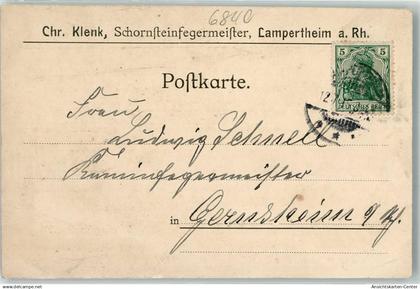 6840
Chr. Klenk, Schornsteinfegermeister, Lampertheim a. Rh.
5 5
DEUTSCHES REICH
Postkarte.
Frau
Ludwig Schnell
Kaminfegermeister
in Gernsheim a/Rh
akpool.de
Ansichtskarten-Center